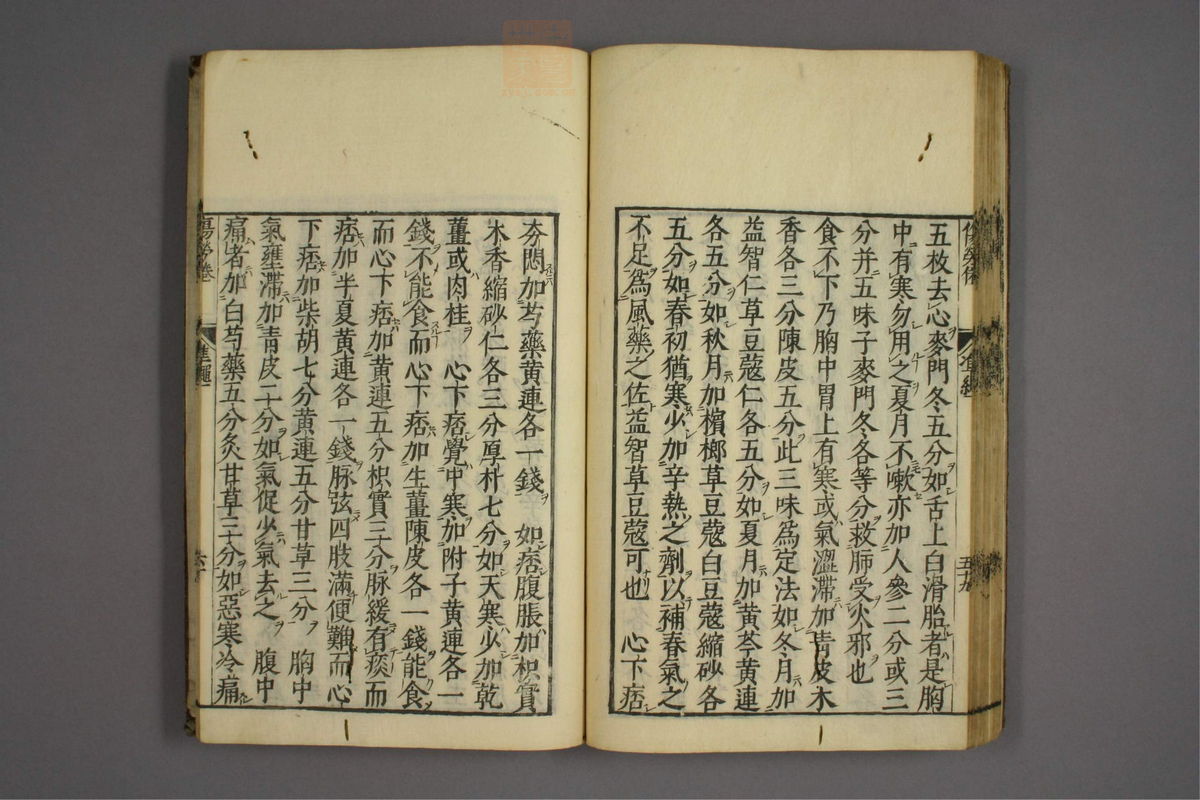 五枚去心麥門冬五分如舌上白滑胎者是胸
中有寒勿用之夏月不嗽亦加人參二分或三
分并五味子麥門冬各等分救肺受火邪也
食不下乃胸中胃上有寒或氣澀滯加青皮木
香各三分陳皮五分此三味爲定法如冬月加
益智仁草豆蔻仁各五分如夏月加黃芩黃連
各五分如秋月加檳榔草豆蔻白豆蔻縮砂各
五分如春初猶寒少加辛熱之劑以補春氣之
不足爲風藥之佐益智草豆蔻可也 心下痞
夯悶加芍藥黃連各一錢 如痞腹脹加枳實
木香縮砂仁各三分厚朴七分如天寒少加乾
薑或肉桂 心下痞覺中寒加附子黃連各一
錢不能食而心下痞加生薑陳皮各一錢能食
而心下痞加黃連五分枳實三分脉緩有痰而
痞加半夏黃連各一錢脉弦四肢滿便難而心
下痞加柴胡七分黃連五分甘草三分 胸中
氣壅滯加青皮二分如氣促少氣去之 腹中
痛者加白芍藥五分炙甘草三分如惡寒冷痛